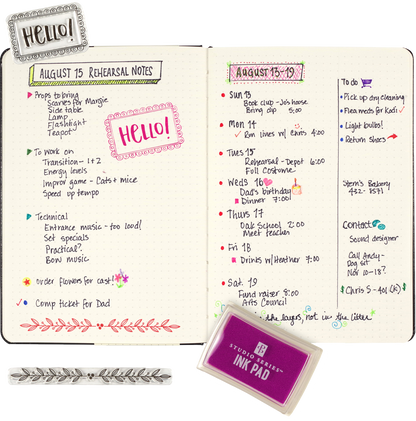 HELLO!
AUGUST 15 REHEARSAL NOTES
Props to bring
Scarves for Margie
Side table
Lamp
Flashlight
Teapot
HELLO!
To work on
Transition - 1+2
Energy levels
Improv game - Cats + mice
Speed up tempo
Technical
Entrance music - too loud!
Set specials
Practical?
Bow music
Order flowers for cast!
Comp ticket for Dad
AUGUST 13-19
Sun 13
Book club - Jo's house
Bring dip 5:00
Mon 14
Run lines w/ Chris 4:00
Tues 15
Rehearsal - Depot 6:00
Full Costume
Weds 16
Dad's birthday
Dinner 7:00
Thurs 17
Oak School 2:00
Meet teacher
Fri 18
Drinks w/ Heather 9:00
Sat. 19
Fund raiser 8:00
Arts Council
in the layers, not in the litter
To do
Pick up dry cleaning
Flea meds for Kali
Light bulbs!
Return shoes
Stern's Bakery
Contact
Sound designer
Call Andy-
Dog sit
Nov 10-18?
STUDIO SERIES
INK PAD